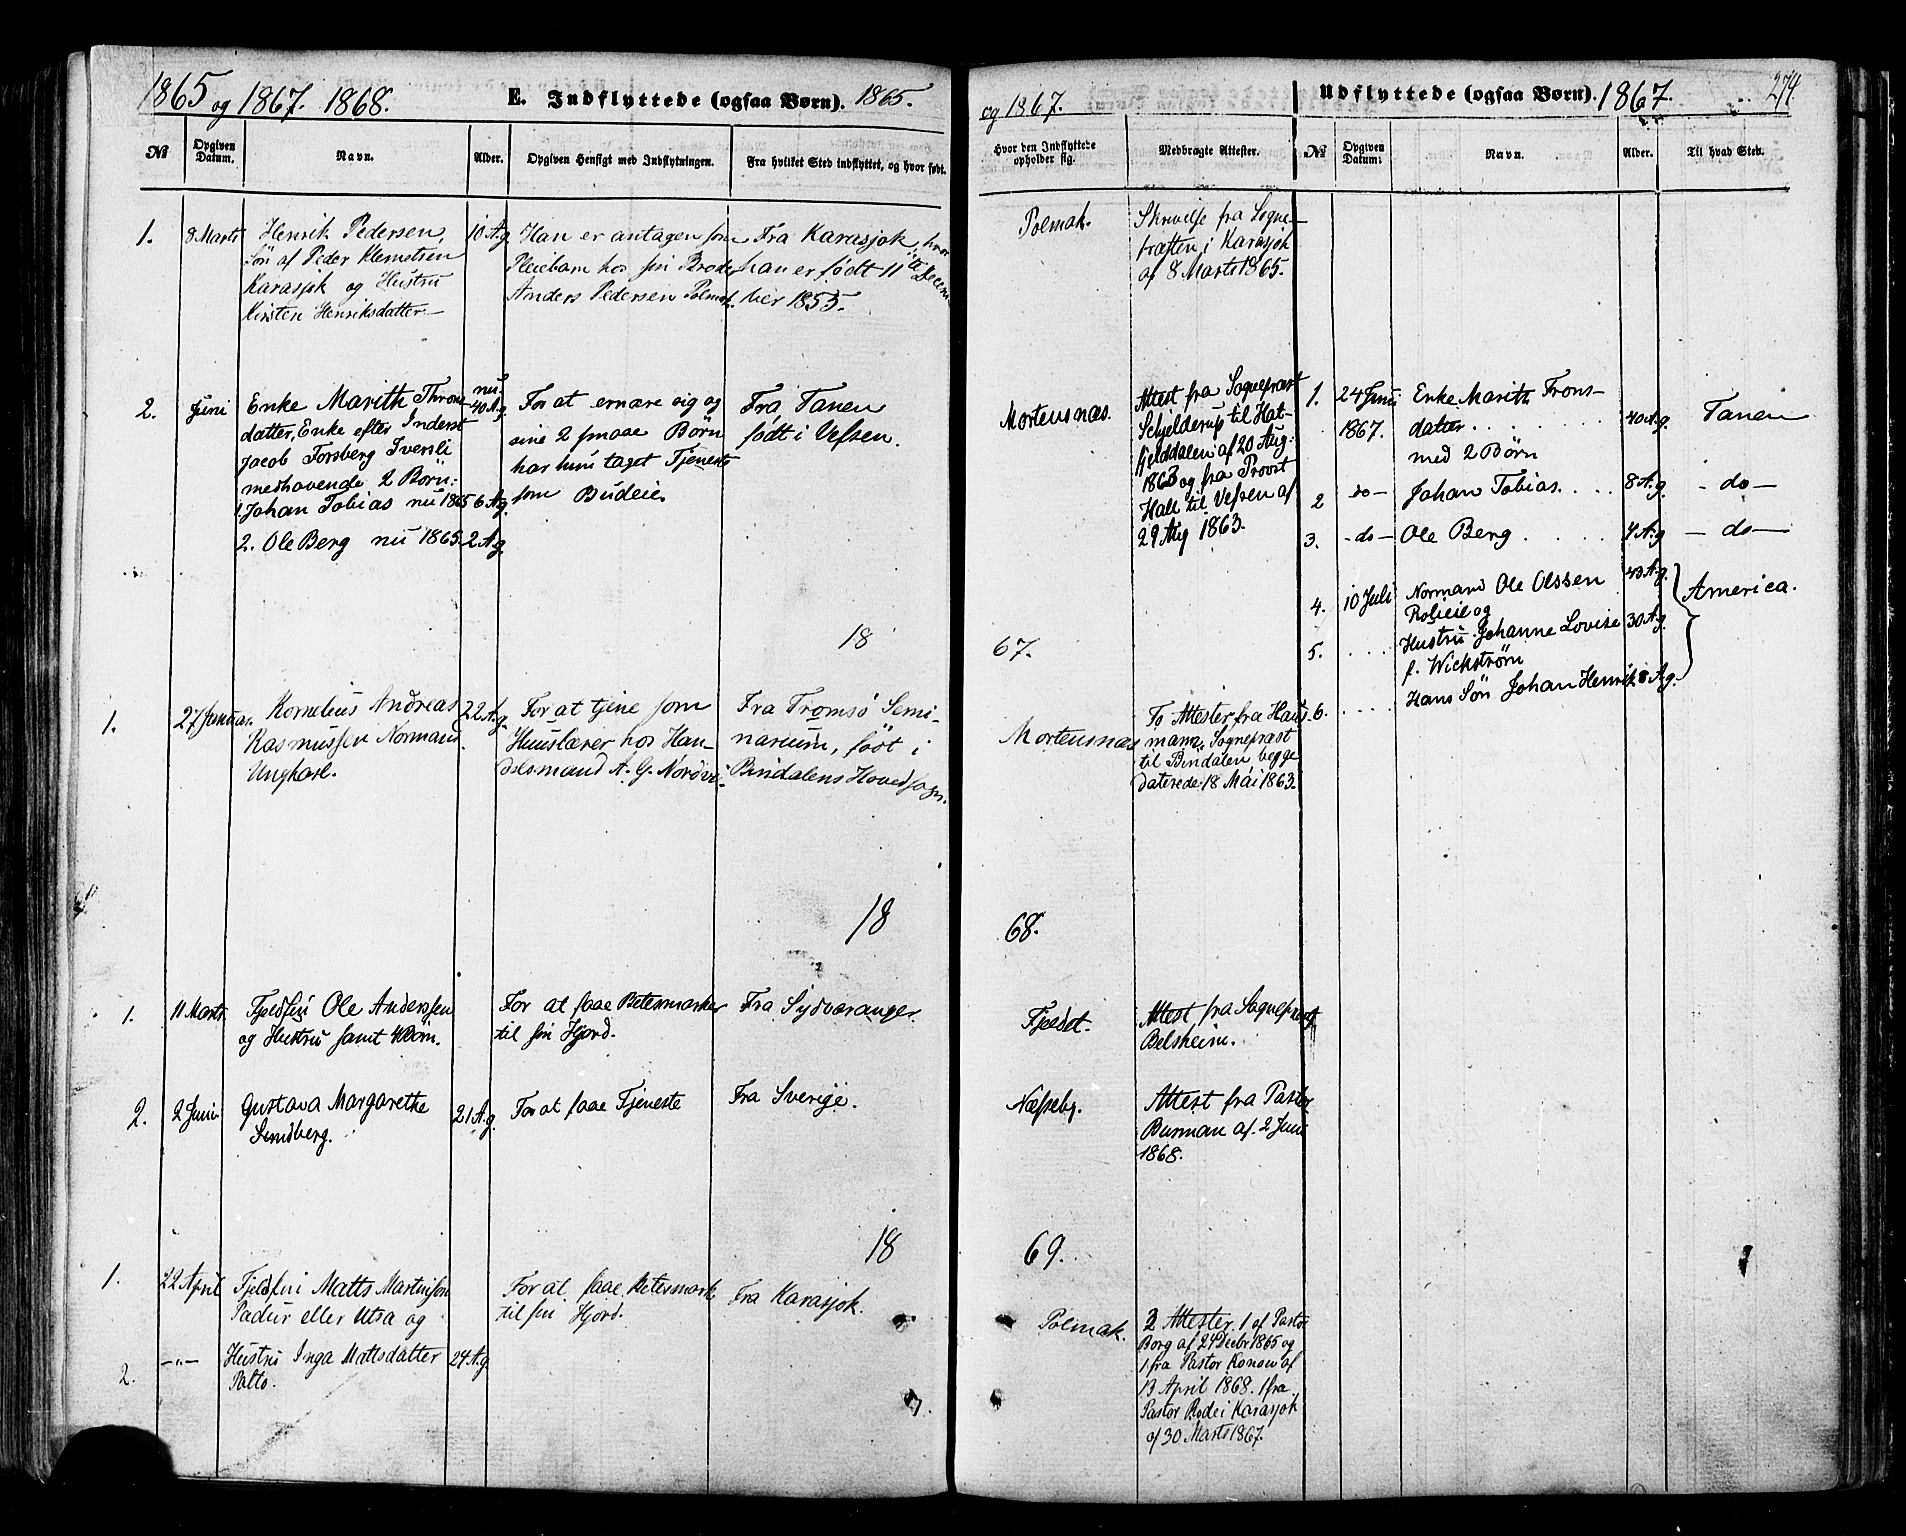 1865 og 1867. 1868.
E. Indflyttede (ogsaa Børn). 1865.
№
Opgiven Datum.
Navn.
Alder.
Opgiven Hensigt med Indflytningen.
Fra hvilket Sted indflyttet, og hvor født.
1.
8 Marts
Henrik Pedersen,
Søn af Peder Klemetsen
Karasjok og Hustru
Kirsten Henriksdatter
10 A.g.
Han er antagen som
Pleiebarn hos sin Broder
Anders Pedersen Polmak.
Fra Karasjok, hvor
han er født 11te Decem
ber 1855.
2.
Juni
Enke Marith Thrond
datter, Enke efter Inderst
Jacob Forsberg Iversli
medhavende 2 Børn:
1. Johan Tobias nu 1865 6 A.g.
2. Ole Berg nu 1865. 2 A.g.
nu
40 A.g.
For at ernære sig og
sine 2 smaae Børn
har hun taget Tjeneste
som Budeie.
Fra Tanen
født i Vefsen.
18
1.
27 Januar.
Kornelius Andreas
Rasmussen Normand
Ungkarl.
22 A.g.
For at tjene som
Huuslærer hos Han-
delsmand A. G. Nordvi
Fra Tromsö Semi-
narium, født i
Bindalens Hovedsogn.
18
1.
11 Marts
Fjeldfin Ole Anderssen
og Hustru samt 4 Börn.
For at faae Betesmarker
til sin Hjord.
Fra Sydvaranger.
2.
2 Juni
Gustava Margarethe
21 A.g.
For at faae Tjeneste
Fra Sverige.
18
1.
22 April
Fjeldfin Matts
Padur eller Utsa og
For at faae Betesmark
til sin Hjord.
Fra Karasjok.
2.
-"-
Hustru Inga Mattsdatter
Palto.
24 A.g.
og 1867.
Udflyttede (ogsaa Børn). 1867.
274.
Hvor den Indflyttede opholder sig.
Medbragte Attester.
№
Opgiven Datum:
Navn.
Alder.
Til hvad Sted.
Polmak.
Skrivelse fra Sogne-
præsten i Karasjok
af 8 Marts 1865.
Mortensnæs.
Attest fra Sognepræst
Schjelderup til Hat-
fjelddalen af 20 Aug:
1863 og fra Provst
til Vefsen af
29 Aug 1863.
1.
24 Juni
1867.
Enke Marith Trons-
datter . . . . . . .
med 2 Börn
40 A.g.
Tanen
2
do
Johan Tobias. . . .
8 A.g.
- do -
3.
- do -
Ole Berg . . . . .
4 A.g
- do -
4.
10 Juli
Normand Ole Olssen
og
43 A.g.
America.
5.
. . . .
Hustru Johanne Lovise
f. Wickström
30 A.g.
6.
. . . .
Hans Søn Johan Henrik 8 A.g.
67.
Mortensnæs
To Attester fra
Sognepræst
til Bindalen begge
daterede 18 Mai 1863.
68.
Fjeldet.
Attest fra Sognepræst
Belsheim.
Næsseby.
Attest fra Pastor
Burman af 2 Juni
1868.
69.
Polmak.
2 Attester. 1 af Pastor
Borg af 24 Decbr 1865 og
1 fra Pastor Konow af
13 April 1868. 1 fra
Pastor Rode i Karasjok
af 30 Marts 1867.